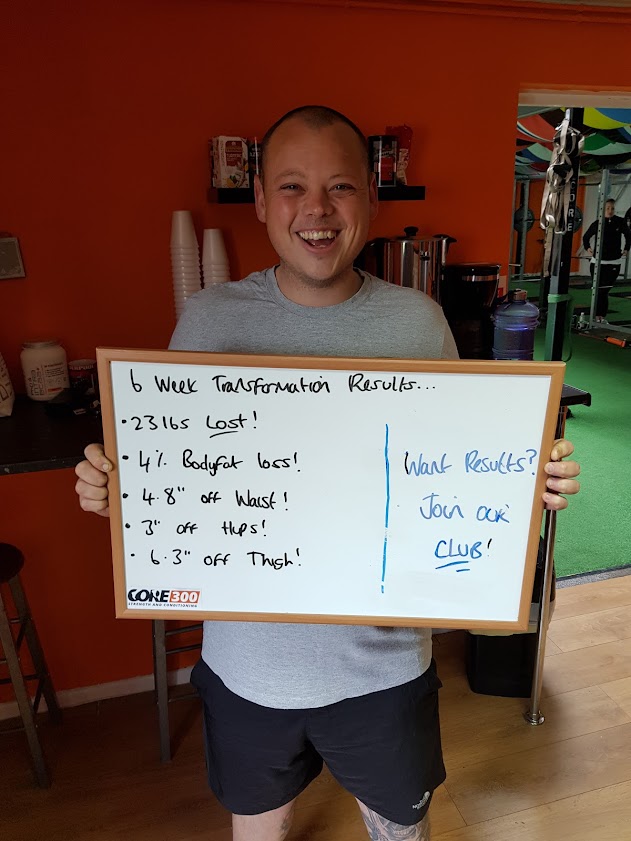 6 Week Transformation Results...
• 23 lbs Lost!
• 4% Bodyfat loss!
• 4.8" off Waist!
• 3" off Hips!
• 6.3" off Thigh!
Want Results?
Join our
CLUB!
CORE 300
STRENGTH AND CONDITIONING